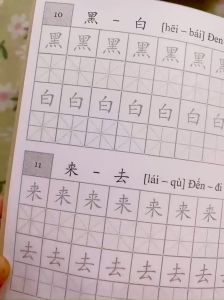 10 黑 - 白 [hēi – bái] Đen
黑 黑 黑 黑 黑 黑 黑
白 白 白 白 白 白 白
11 来 - 去 [lái – qù] Đến – đi
来 来 来 来 来 来 来
去 去 去 去 去 去 去